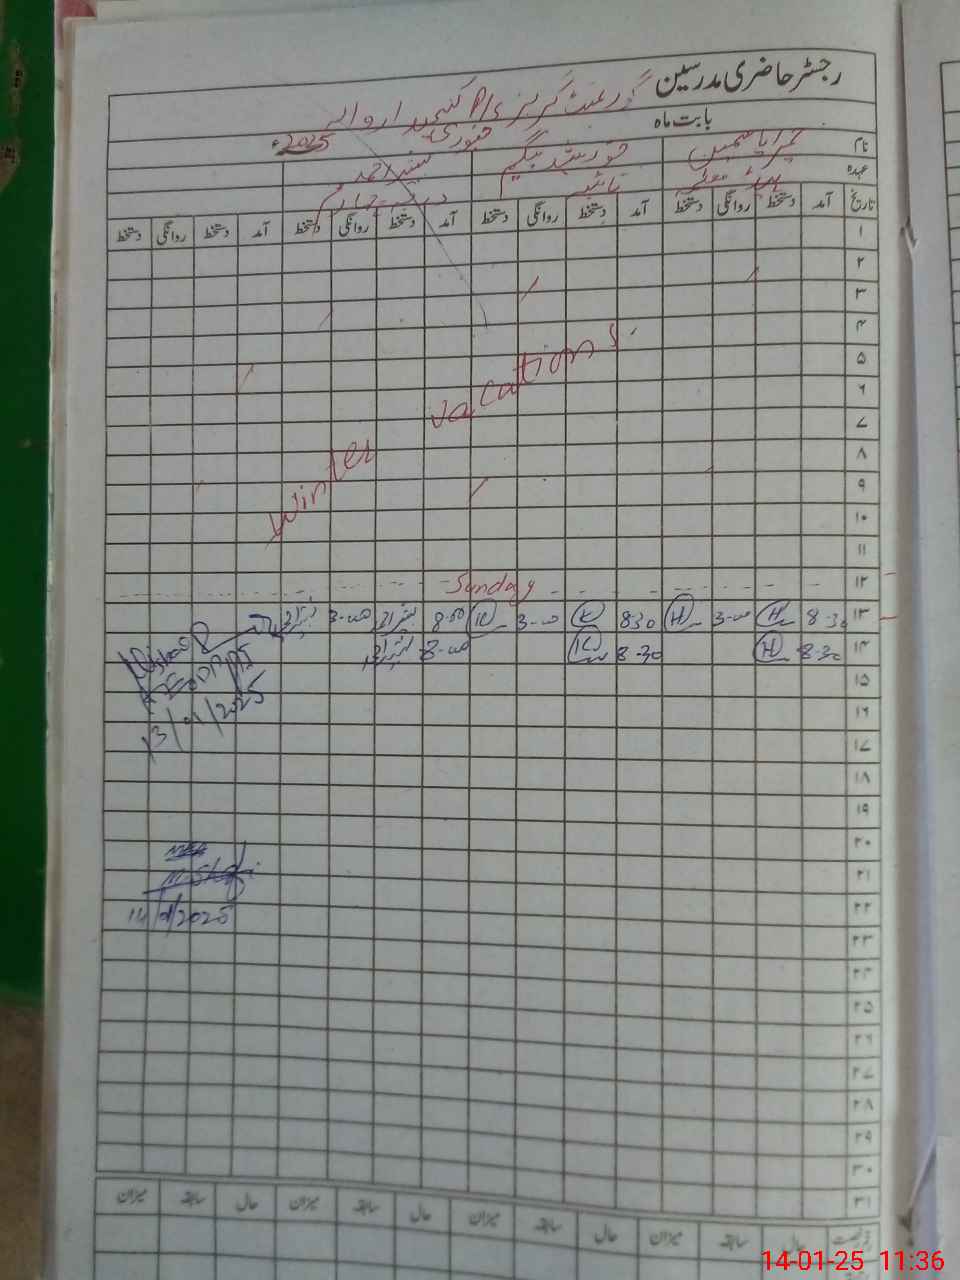 رجسٹر حاضری مدرسین
گورنمنٹ گرلز P/S
بابت ماہ جنوری 2025ء
نام حمیرا یاسمین خورشید بیگم
عہدہ ہیڈ ٹیچر نائب درجہ چہارم
تاریخ آمد دستخط روانگی دستخط آمد دستخط روانگی دستخط آمد دستخط روانگی دستخط آمد دستخط روانگی دستخط
۱
۲
۳
۴
۵
۶
۷
۸
۹
۱۰
۱۱
Winter vacations.
۱۲ Sunday
۱۳ 8-30 H 3-00 H 8-30 K 3-00 K 8-00 3-00
۱۴ 8-30 H 8-30 K 8-00
13/01/2025
۱۵
۱۶
۱۷
۱۸
۱۹
۲۰
۲۱
14/01/2025
۲۲
۲۳
۲۴
۲۵
۲۶
۲۷
۲۸
۲۹
۳۰
۳۱
حال سابقہ میزان حال سابقہ میزان حال سابقہ میزان حال سابقہ میزان
14-01-25 11:36